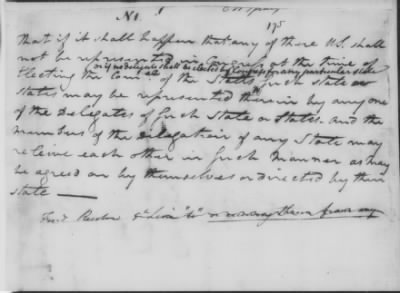 No. 1
175
that if it shall happen that any of these U.S. shall
not be represented in Congress at the time of
or if no delegate shall be elected by Congress for any particular state
Electing the Com: of the States, such State or
States may be represented therein by any one
of the Delegates of such State or States. And the
members of the delegation of any State may
relieve each other in such Manner as may
be agreed on by themselves or directed by their
state —